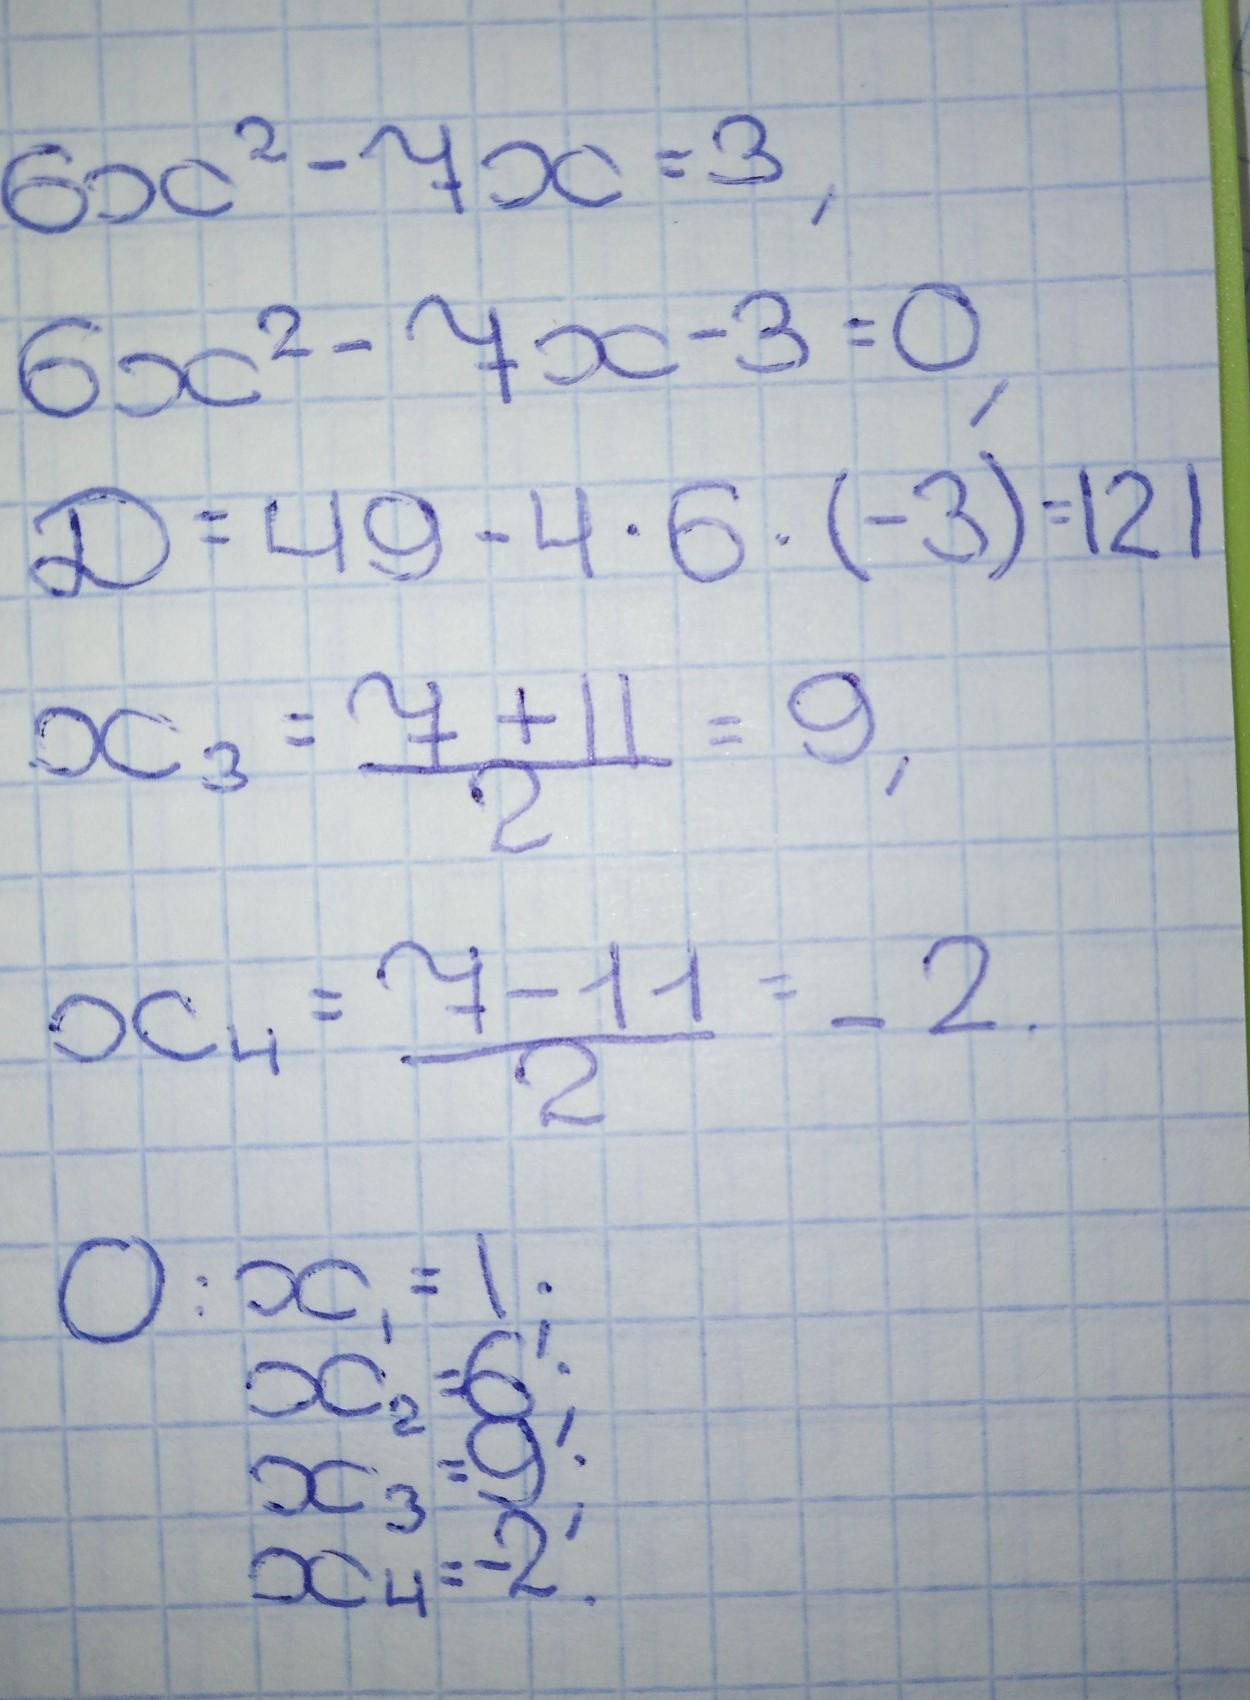 6x² - 7x = 3,
6x² - 7x - 3 = 0,
D = 49 - 4 · 6 · (-3) = 121
x₃ = (7 + 11)/2 = 9,
x₄ = (7 - 11)/2 = -2.
O: x₁ = 1;
x₂ = 6;
x₃ = 9;
x₄ = -2.